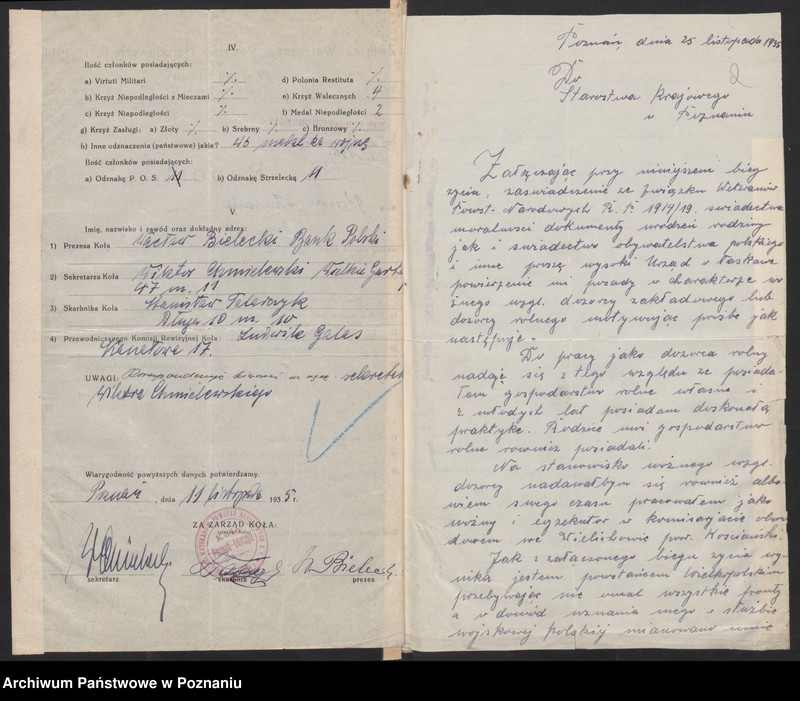 IV.
Ilość członków posiadających:
a) Virtuti Militari ·/.
d) Polonia Restituta ·/.
b) Krzyż Niepodległości z Mieczami ·/.
e) Krzyż Walecznych 4
c) Krzyż Niepodległości ·/.
f) Medal Niepodległości 2
g) Krzyż Zasługi: a) Złoty ·/. b) Srebrny ·/. c) Bronzowy ·/.
h) Inne odznaczenia (państwowe) jakie? 45 medal za wojnę
Ilość członków posiadających:
a) Odznakę P. O. S. 11 b) Odznakę Strzelecką 11
V.
Imię, nazwisko i zawód oraz dokładny adres:
1) Prezesa Koła Wacław Bielecki Bank Polski
2) Sekretarza Koła Wiktor Chmielewski Wielkie Garba
47 m. 11
3) Skarbnika Koła Stanisław
Długa 10 m. 10
4) Przewodniczącego Komisji Rewizyjnej Koła: Ludwik
17.
UWAGI: Korespondencję na ręce sekretarza
Wiktora Chmielewskiego
Wiarygodność powyższych danych potwierdzamy.
Poznań, dnia 11 listopada 1935 r.
ZA ZARZĄD KOŁA:
sekretarz skarbnik prezes
W. Bielecki
Poznań, dnia 25 listopada 1935
2
Do
Starostwa Krajowego
w Poznaniu
Załączając przy niniejszem bieg
życia, zaświadczenie ze Związku Weteranów
Powst. Narodowych R. P. 1914/19, świadectwa
moralności dokumenty urodzin rodziny
jak i świadectwo obywatelstwa polskiego
i inne proszę wysoki Urząd o łaskawe
powierzenie mi posady w charakterze wo
źnego wzgl. dozorcy zakładowego lub
dozorcy rolnego motywując prośbę jak
następuje.
Do pracy jako dozorca rolny
nadaję się z tego względu że posiada-
łem gospodarstwo rolne własne i
z młodych lat posiadam doskonałą
praktykę. Rodzice moi gospodarstwo
rolne również posiadali.
Na stanowisko woźnego wzgl.
dozorcy nadawałbym się również albo
wiem swego czasu pracowałem jako
woźny i egzekutor w komisarjacie obwo
dowem we Wielichowie pow. Kościański.
Jak z załączonego biegu życia wy-
nika jestem powstańcem Wielkopolskim
przebywając nie omal wszystkie fronty
a w dowód uznania mego w służbie
wojskowej polskiej mianowano mnie
Archiwum Państwowe w Poznaniu